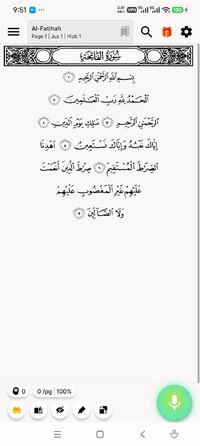 9:51
Al-Fatihah
Page 1 | Juz 1 | Hizb 1
سُورَةُ الفَاتِحَةِ
بِسْمِ ٱللَّهِ ٱلرَّحْمَٰنِ ٱلرَّحِيمِ ١
ٱلْحَمْدُ لِلَّهِ رَبِّ ٱلْعَٰلَمِينَ ٢
ٱلرَّحْمَٰنِ ٱلرَّحِيمِ ٣ مَٰلِكِ يَوْمِ ٱلدِّينِ ٤
إِيَّاكَ نَعْبُدُ وَإِيَّاكَ نَسْتَعِينُ ٥ ٱهْدِنَا
ٱلصِّرَٰطَ ٱلْمُسْتَقِيمَ ٦ صِرَٰطَ ٱلَّذِينَ أَنْعَمْتَ
عَلَيْهِمْ غَيْرِ ٱلْمَغْضُوبِ عَلَيْهِمْ
وَلَا ٱلضَّآلِّينَ ٧
0
0 /pg
100%